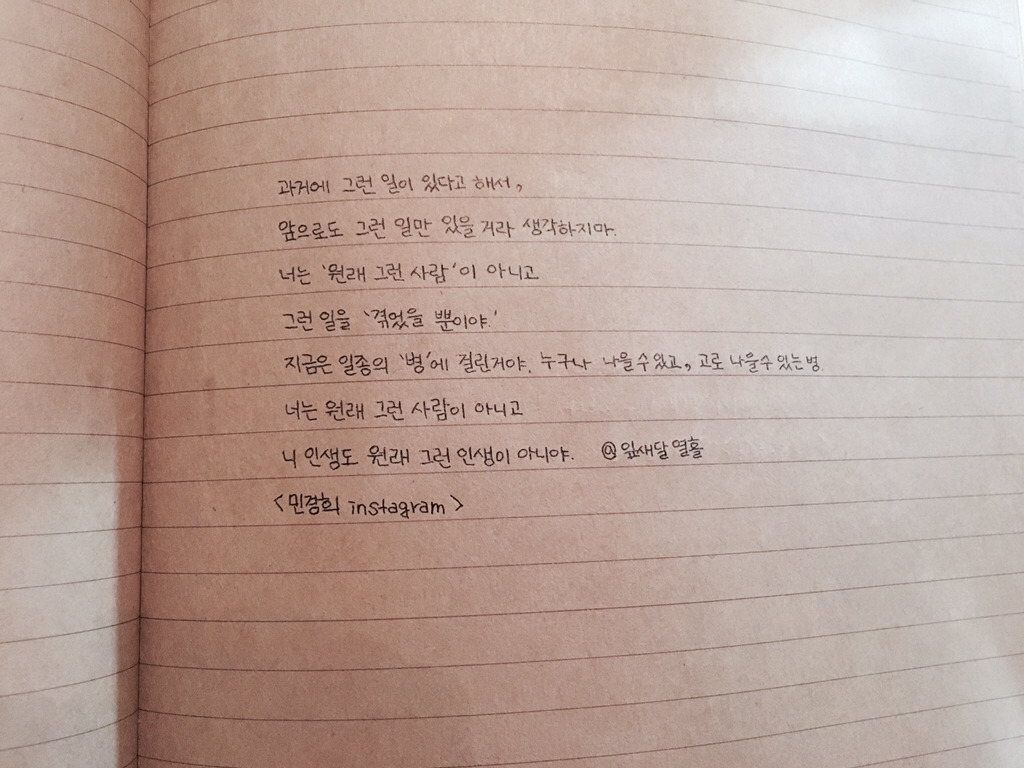 과거에 그런 일이 있다고 해서,
앞으로도 그런 일만 있을 거라 생각하지마.
너는 '원래 그런 사람'이 아니고
그런 일을 '겪었을 뿐이야.'
지금은 일종의 '병'에 걸린거야. 누구나 나을 수 있고, 고로 나을 수 있는 병.
너는 원래 그런 사람이 아니고
니 인생도 원래 그런 인생이 아니야. @잎새달열흘
<민경희 instagram>